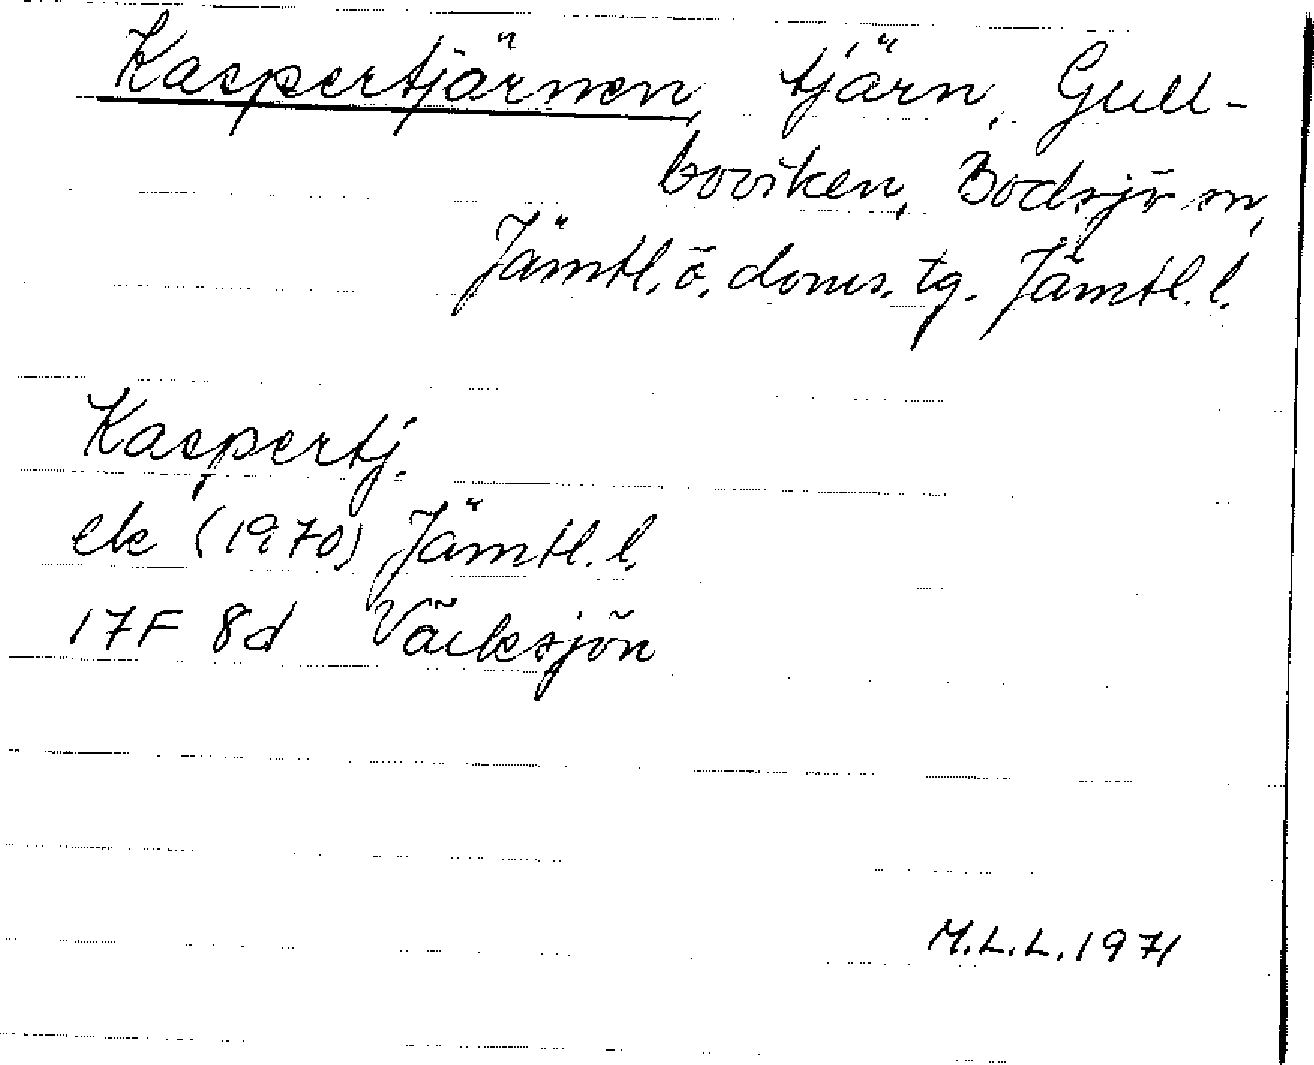 Kaspertjärnen, tjärn, Gull-
boviken, Bodsjö sn,
Jämtl. ö. doms. tg. Jämtl. l.
Kaspertj.
ek (1970) Jämtl. l.
17F 8d Väcksjön
M.L.L. 1971